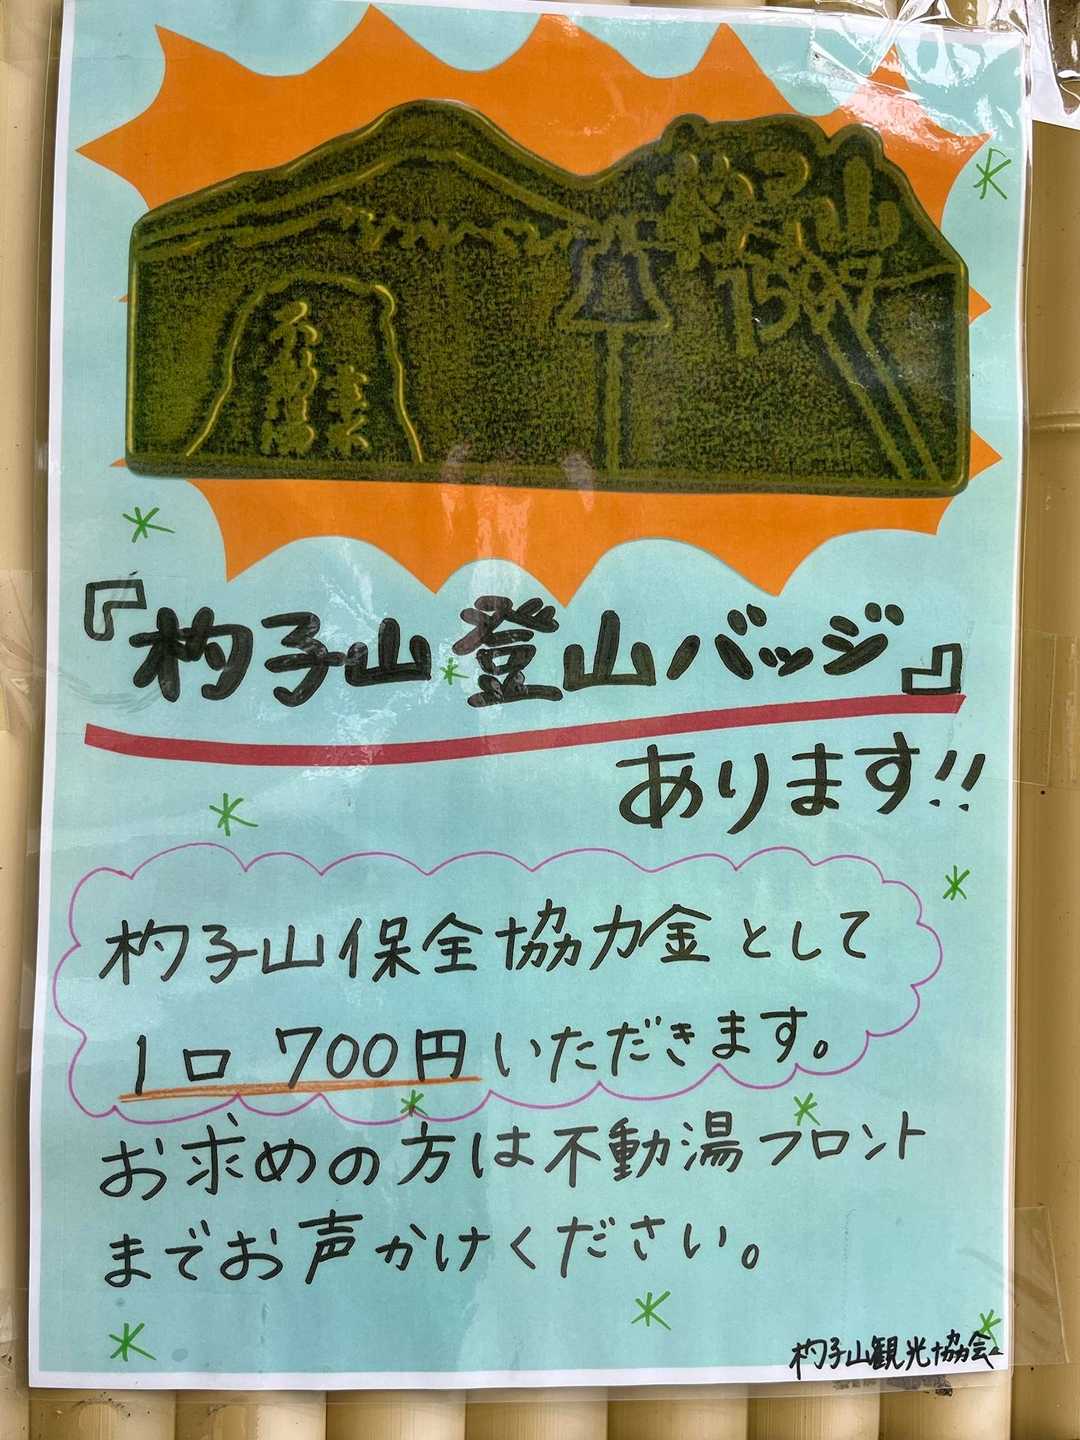 杓子山
1597
不動湯
霊水
『杓子山登山バッジ』
あります!!
杓子山保全協力金として
1口 700円いただきます。
お求めの方は不動湯フロント
までお声かけください。
杓子山観光協会